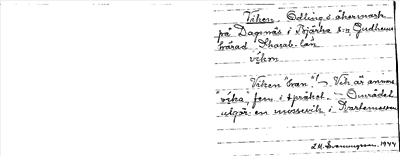 Viken. Odlings o. åkermark
på Dagsnäs i Bjärka s:n Gudhems
härad, Skarab. län
vikɐn
Viken "bran"! – Vik är annars
"vika", fem. i språket. – Området
utgör en mossevik i Hartemossen
L.M. Svenungsson. 1944